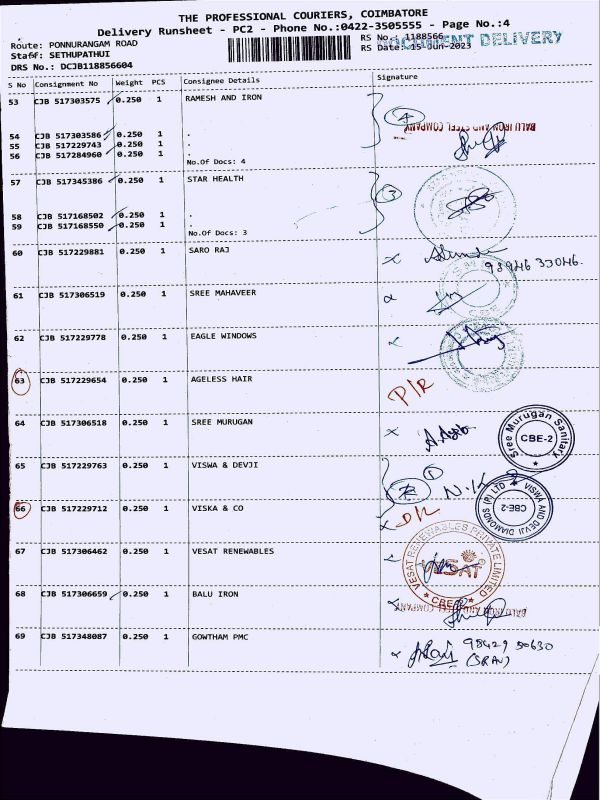 THE PROFESSIONAL COURIERS, COIMBATORE
Delivery Runsheet - PC2 - Phone No.:0422-3505555 - Page No.:4
Route: PONNURANGAM ROAD
Staff: SETHUPATHUI
DRS No.: DCJB118856604
RS No.: 1188566
RS Date: 15-Jun-2023
DOCUMENT DELIVERY
S No Consignment No Weight PCS Consignee Details Signature
53 CJB 517303575 0.250 1 RAMESH AND IRON
4
54 CJB 517303586 0.250 1 .
BALU IRON AND STEEL COMPANY
55 CJB 517229743 0.250 1 .
56 CJB 517284960 0.250 1 .
No.Of Docs: 4
57 CJB 517345386 0.250 1 STAR HEALTH
3
58 CJB 517168502 0.250 1 .
59 CJB 517168550 0.250 1 .
No.Of Docs: 3
60 CJB 517229881 0.250 1 SARO RAJ
98946 33046.
61 CJB 517306519 0.250 1 SREE MAHAVEER
62 CJB 517229778 0.250 1 EAGLE WINDOWS
63 CJB 517229654 0.250 1 AGELESS HAIR
P/R
64 CJB 517306518 0.250 1 SREE MURUGAN
Sree Murugan Sanitary
CBE-2
65 CJB 517229763 0.250 1 VISWA & DEVJI
VISWA AND DEVJI DIAMONDS (P) LTD
CBE-2
66 CJB 517229712 0.250 1 VISKA & CO
D/R
67 CJB 517306462 0.250 1 VESAT RENEWABLES
VESAT RENEWABLES PRIVATE LIMITED
VESAT
CBE
68 CJB 517306659 0.250 1 BALU IRON
BALU IRON AND STEEL COMPANY
69 CJB 517348087 0.250 1 GOWTHAM PMC
98429 50630